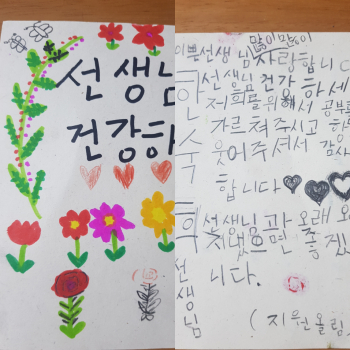 선생님
건강하
많이많이
이쁜선생님 사랑합니
선생님 건강하세
저희를 위해서 공부를
가르쳐 주시고
웃어주셔서 감사
합니다
선생님과 오래
지냈으면 좋겠
니다.
선
생
님
(지원올림